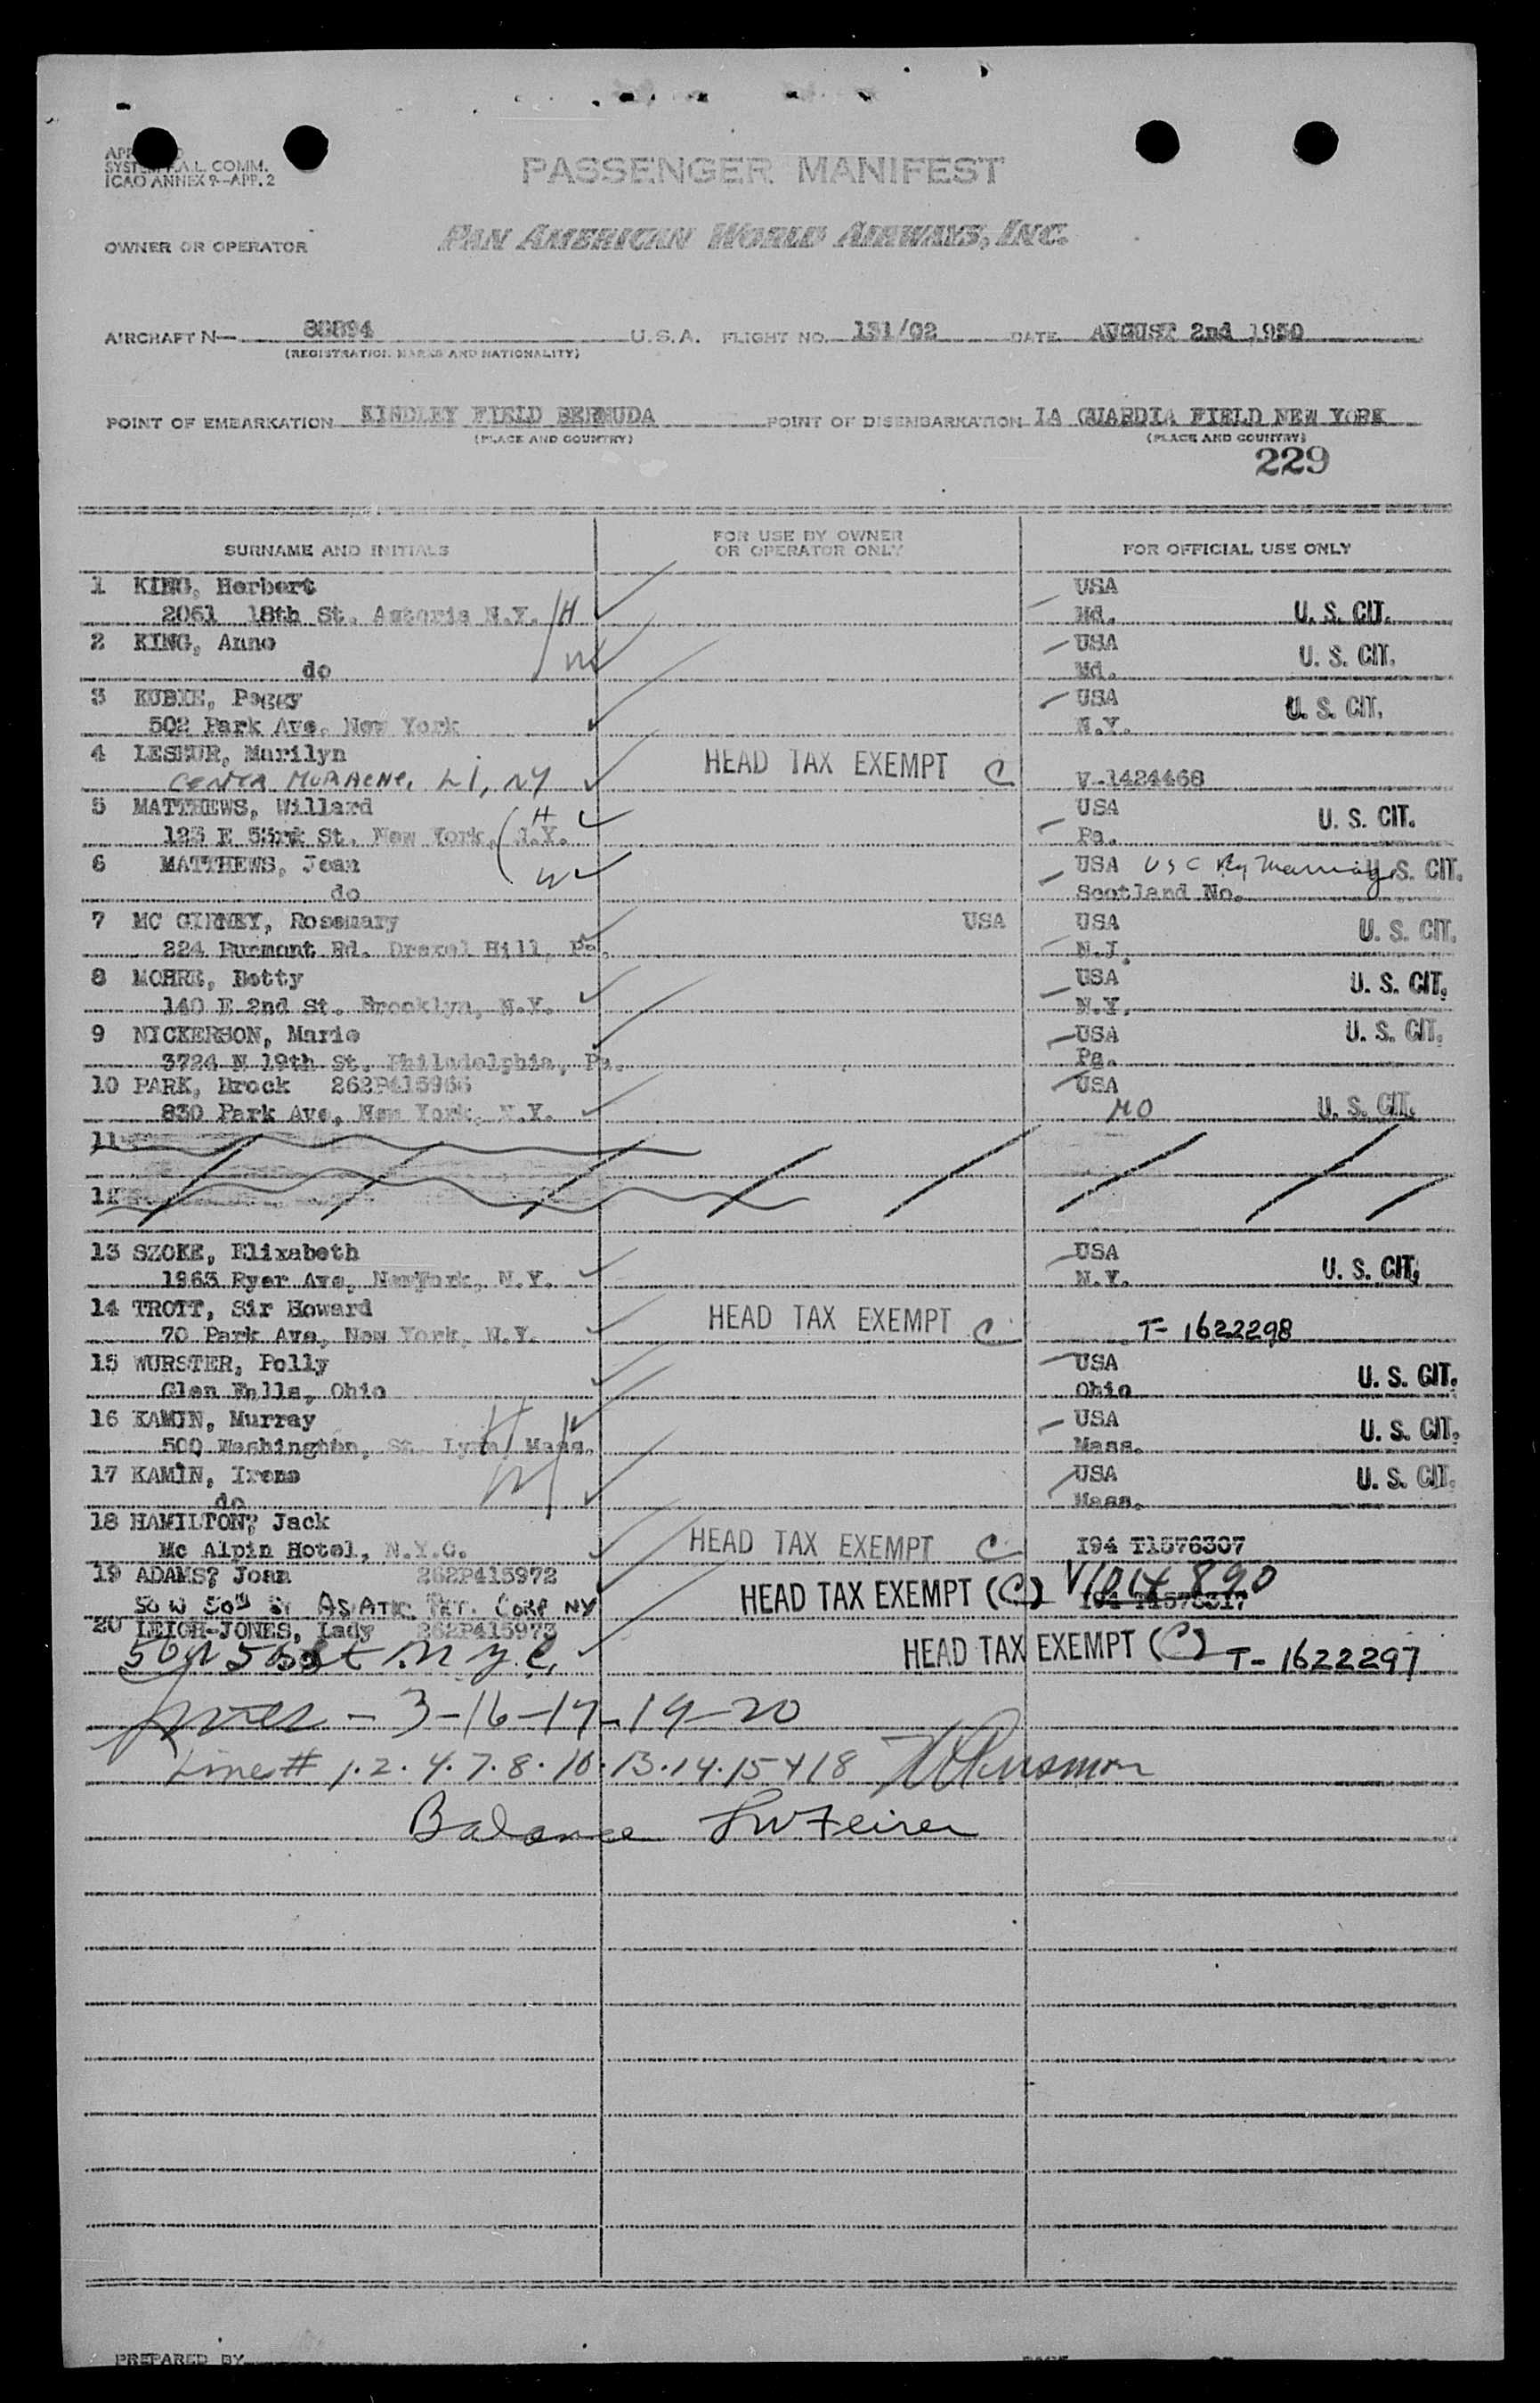 SYSTEM F.A.L. COMM.
ICAO ANNEX 9-APP. 2
PASSENGER MANIFEST
OWNER OR OPERATOR PAN AMERICAN WORLD AIRWAYS, INC.
AIRCRAFT N— 88894 U.S.A. FLIGHT NO. 131/02 DATE AUGUST 2nd 1950
(REGISTRATION MARKS AND NATIONALITY)
POINT OF EMBARKATION KINDLEY FIELD BERMUDA POINT OF DISEMBARKATION LA GUARDIA FIELD NEW YORK
(PLACE AND COUNTRY) (PLACE AND COUNTRY)
229
SURNAME AND INITIALS FOR USE BY OWNER OR OPERATOR ONLY FOR OFFICIAL USE ONLY
1 KING, Herbert USA
2061 18th St. Astoria N.Y. H Md. U. S. CIT.
2 KING, Anne USA U. S. CIT.
do W Md.
3 KUBIE, Peggy USA U. S. CIT.
502 Park Ave, New York N.Y.
4 LESEUR, Marilyn HEAD TAX EXEMPT C
L I, NY V-1424468
5 MATTHEWS, Willard H USA U. S. CIT.
123 E 53rd St. New York, N.Y. Pa.
6 MATTHEWS, Jean W USA U S C By Marriage U. S. CIT.
do Scotland No.
7 MC GIRNEY, Rosemary USA USA U. S. CIT.
224 Burmont Rd. Drexel Hill, Pa. N.J.
8 MOHRE, Betty USA U. S. CIT.
140 E 2nd St. Brooklyn, N.Y. N.Y.
9 NICKERSON, Marie USA U. S. CIT.
3724 N 19th St. Philadelphia, Pa. Pa.
10 PARK, Brock 262P415966 USA
830 Park Ave, New York, N.Y. MO U. S. CIT.
11
12
13 SZOKE, Elizabeth USA U. S. CIT.
1963 Ryer Ave, NewYork, N.Y. N.Y.
14 TROTT, Sir Howard HEAD TAX EXEMPT C
70 Park Ave, New York, N.Y. T- 1622298
15 WURSTER, Polly USA U. S. CIT.
Glen Falls, Ohio Ohio
16 KAMIN, Murray H USA U. S. CIT.
500 Washington, St. Lynn, Mass. Mass.
17 KAMIN, Irene W USA U. S. CIT.
do Mass.
18 HAMILTON, Jack HEAD TAX EXEMPT C
Mc Alpin Hotel, N.Y.C. I94 T1576307
19 ADAMS, Joan 262P415972 HEAD TAX EXEMPT (C) V1014890
50 W 50th St ASIATIC PET. CORP NY I94 T1576317
20 LEIGH-JONES, Lady 262P415973 HEAD TAX EXEMPT (C) T- 1622297
50 W 50 St N.Y.C.
- 3-16-17-19-20
Line # 1.2.4.7.8.10.13.14.15 + 18
Balance
PREPARED BY